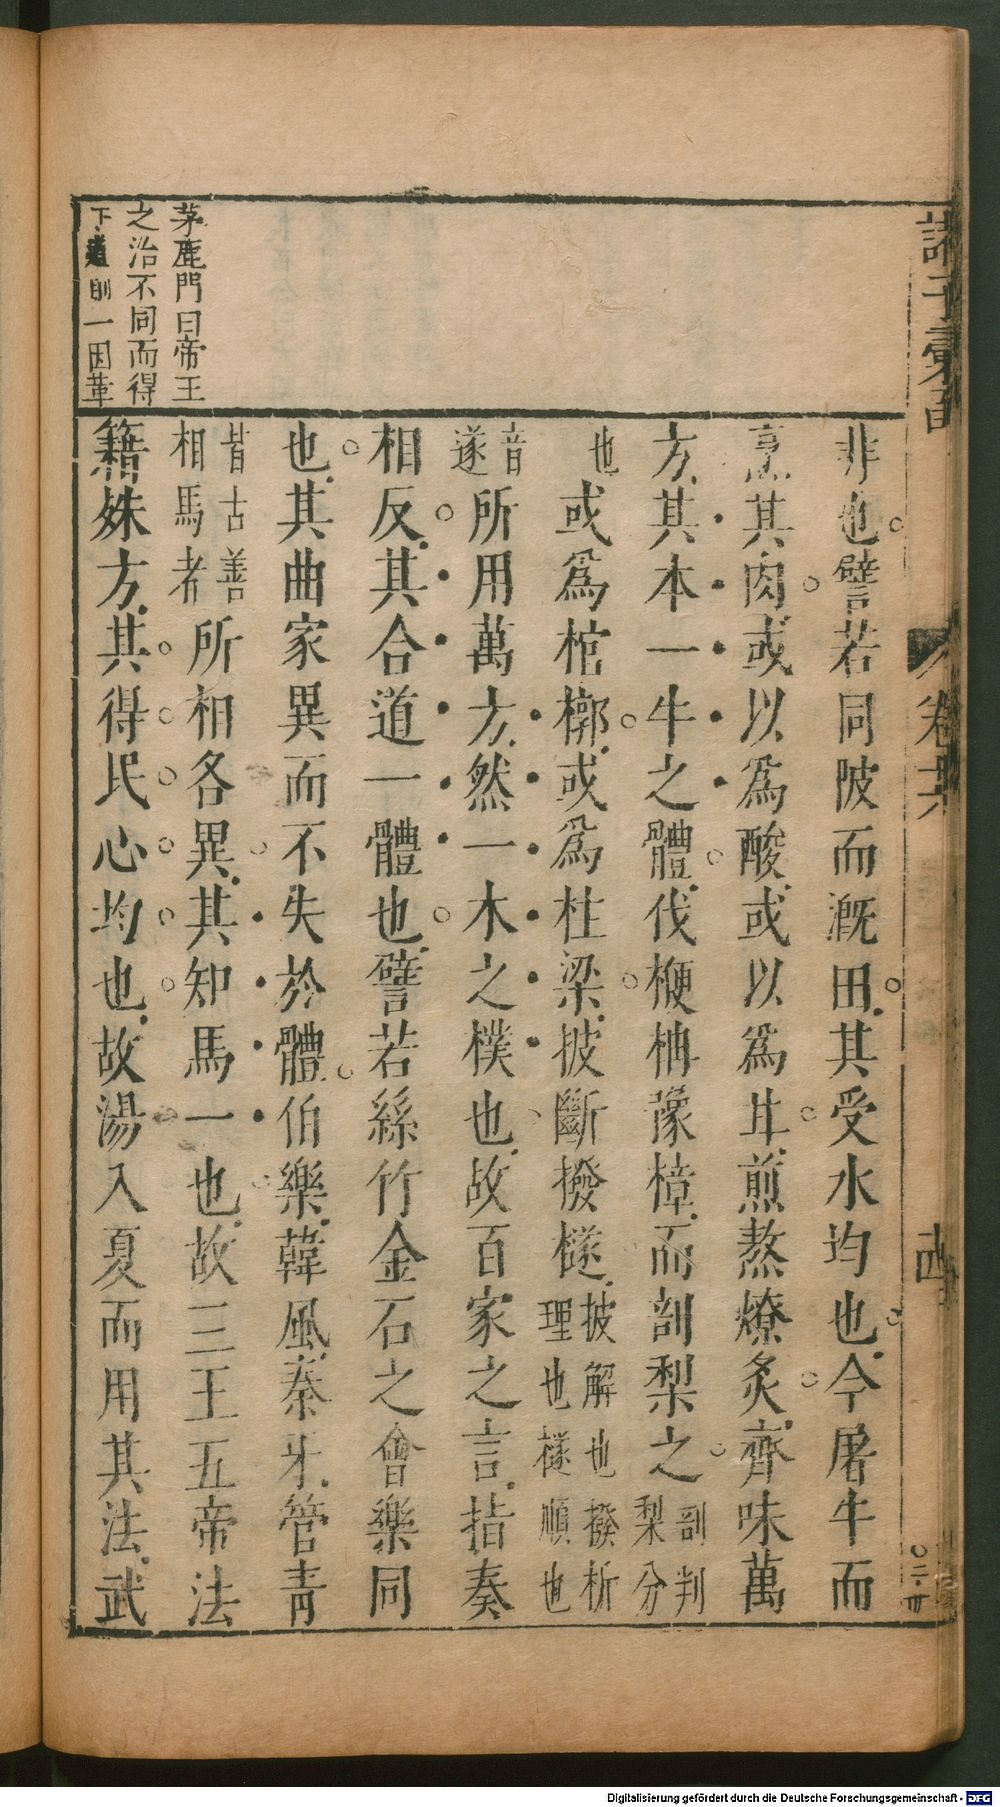 茅鹿門曰帝王
之治不同而得
下道則一因革
非也譬若同陂而漑田其受水均也今屠牛而
烹其肉或以爲酸或以爲甘煎熬燎炙齊味萬
方其本一牛之體伐楩柟豫樟而剖梨之剖判梨分
也或爲棺槨或爲柱梁披斷撥檖披解也撥析理也檖順也
音遂所用萬方然一木之樸也故百家之言指奏
相反其合道一體也譬若絲竹金石之會樂同
也其曲家異而不失於體伯樂韓風秦牙管青
皆古善相馬者所相各異其知馬一也故三王五帝法
籍殊方其得民心均也故湯入夏而用其法武
卷六
Digitalisierung gefördert durch die Deutsche Forschungsgemeinschaft - DFG